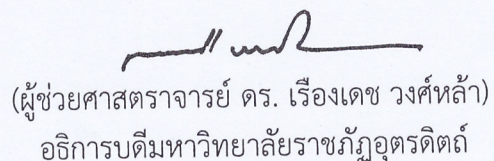 (ผู้ช่วยศาสตราจารย์ ดร. เรืองเดช วงศ์หล้า)
อธิการบดีมหาวิทยาลัยราชภัฏอุตรดิตถ์